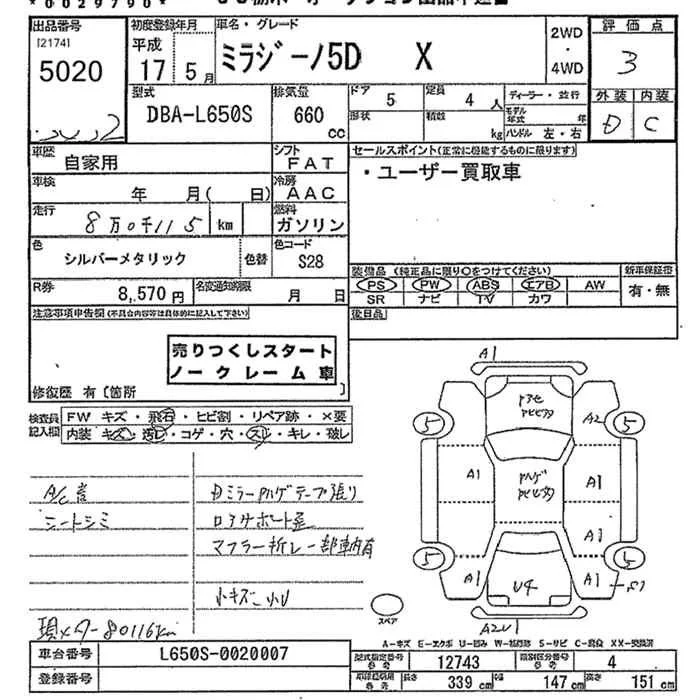 *0029790*
出品番号 初度登録年月 車名・グレード 2WD・4WD 評価点
[2174]
5020 平成17 5月 ミラジーノ5D X 3
型式 排気量 ドア 定員 ディーラー・並行 外装 内装
DBA-L650S 660cc 5 4人 D C
形状 積数 kg モデル年式 年 ハンドル 左・右
車歴 自家用 シフト FAT セールスポイント(正常に機能するものに限ります)
・ユーザー買取車
車検 年 月( 日) 冷房 AAC
走行 8万0千115 km 燃料 ガソリン
色 シルバーメタリック 色替 色コード S28
装備品(純正品に限り○をつけてください) 新車保証書
PS PW ABS エアB AW 有・無
SR ナビ TV カワ
R券 8,570円 名変通知期限 月 日
注意事項申告欄(不具合内容等は具体的に記入して下さい) 後日品
売りつくしスタート
ノークレーム車
修復歴 有〔箇所
検査員記入欄 FW キズ・飛石・ヒビ割・リペア跡・×要
内装 キズ・汚レ・コゲ・穴・スレ・キレ・破レ
シートシミ
マフラー折レ一部車内有
小キズ
現メーター80116km
A1
A2
5 5
A1 A1
A1
5 5
A1 A1
U4
スペア
A2U1
A-キズ E-エクボ U-凹み W-補修跡 S-サビ C-腐食 XX-交換済
車台番号 L650S-0020007 型式指定番号 参考 12743 類別区分番号 参考 4
登録番号 長さ 339cm 幅 147cm 高さ 151cm